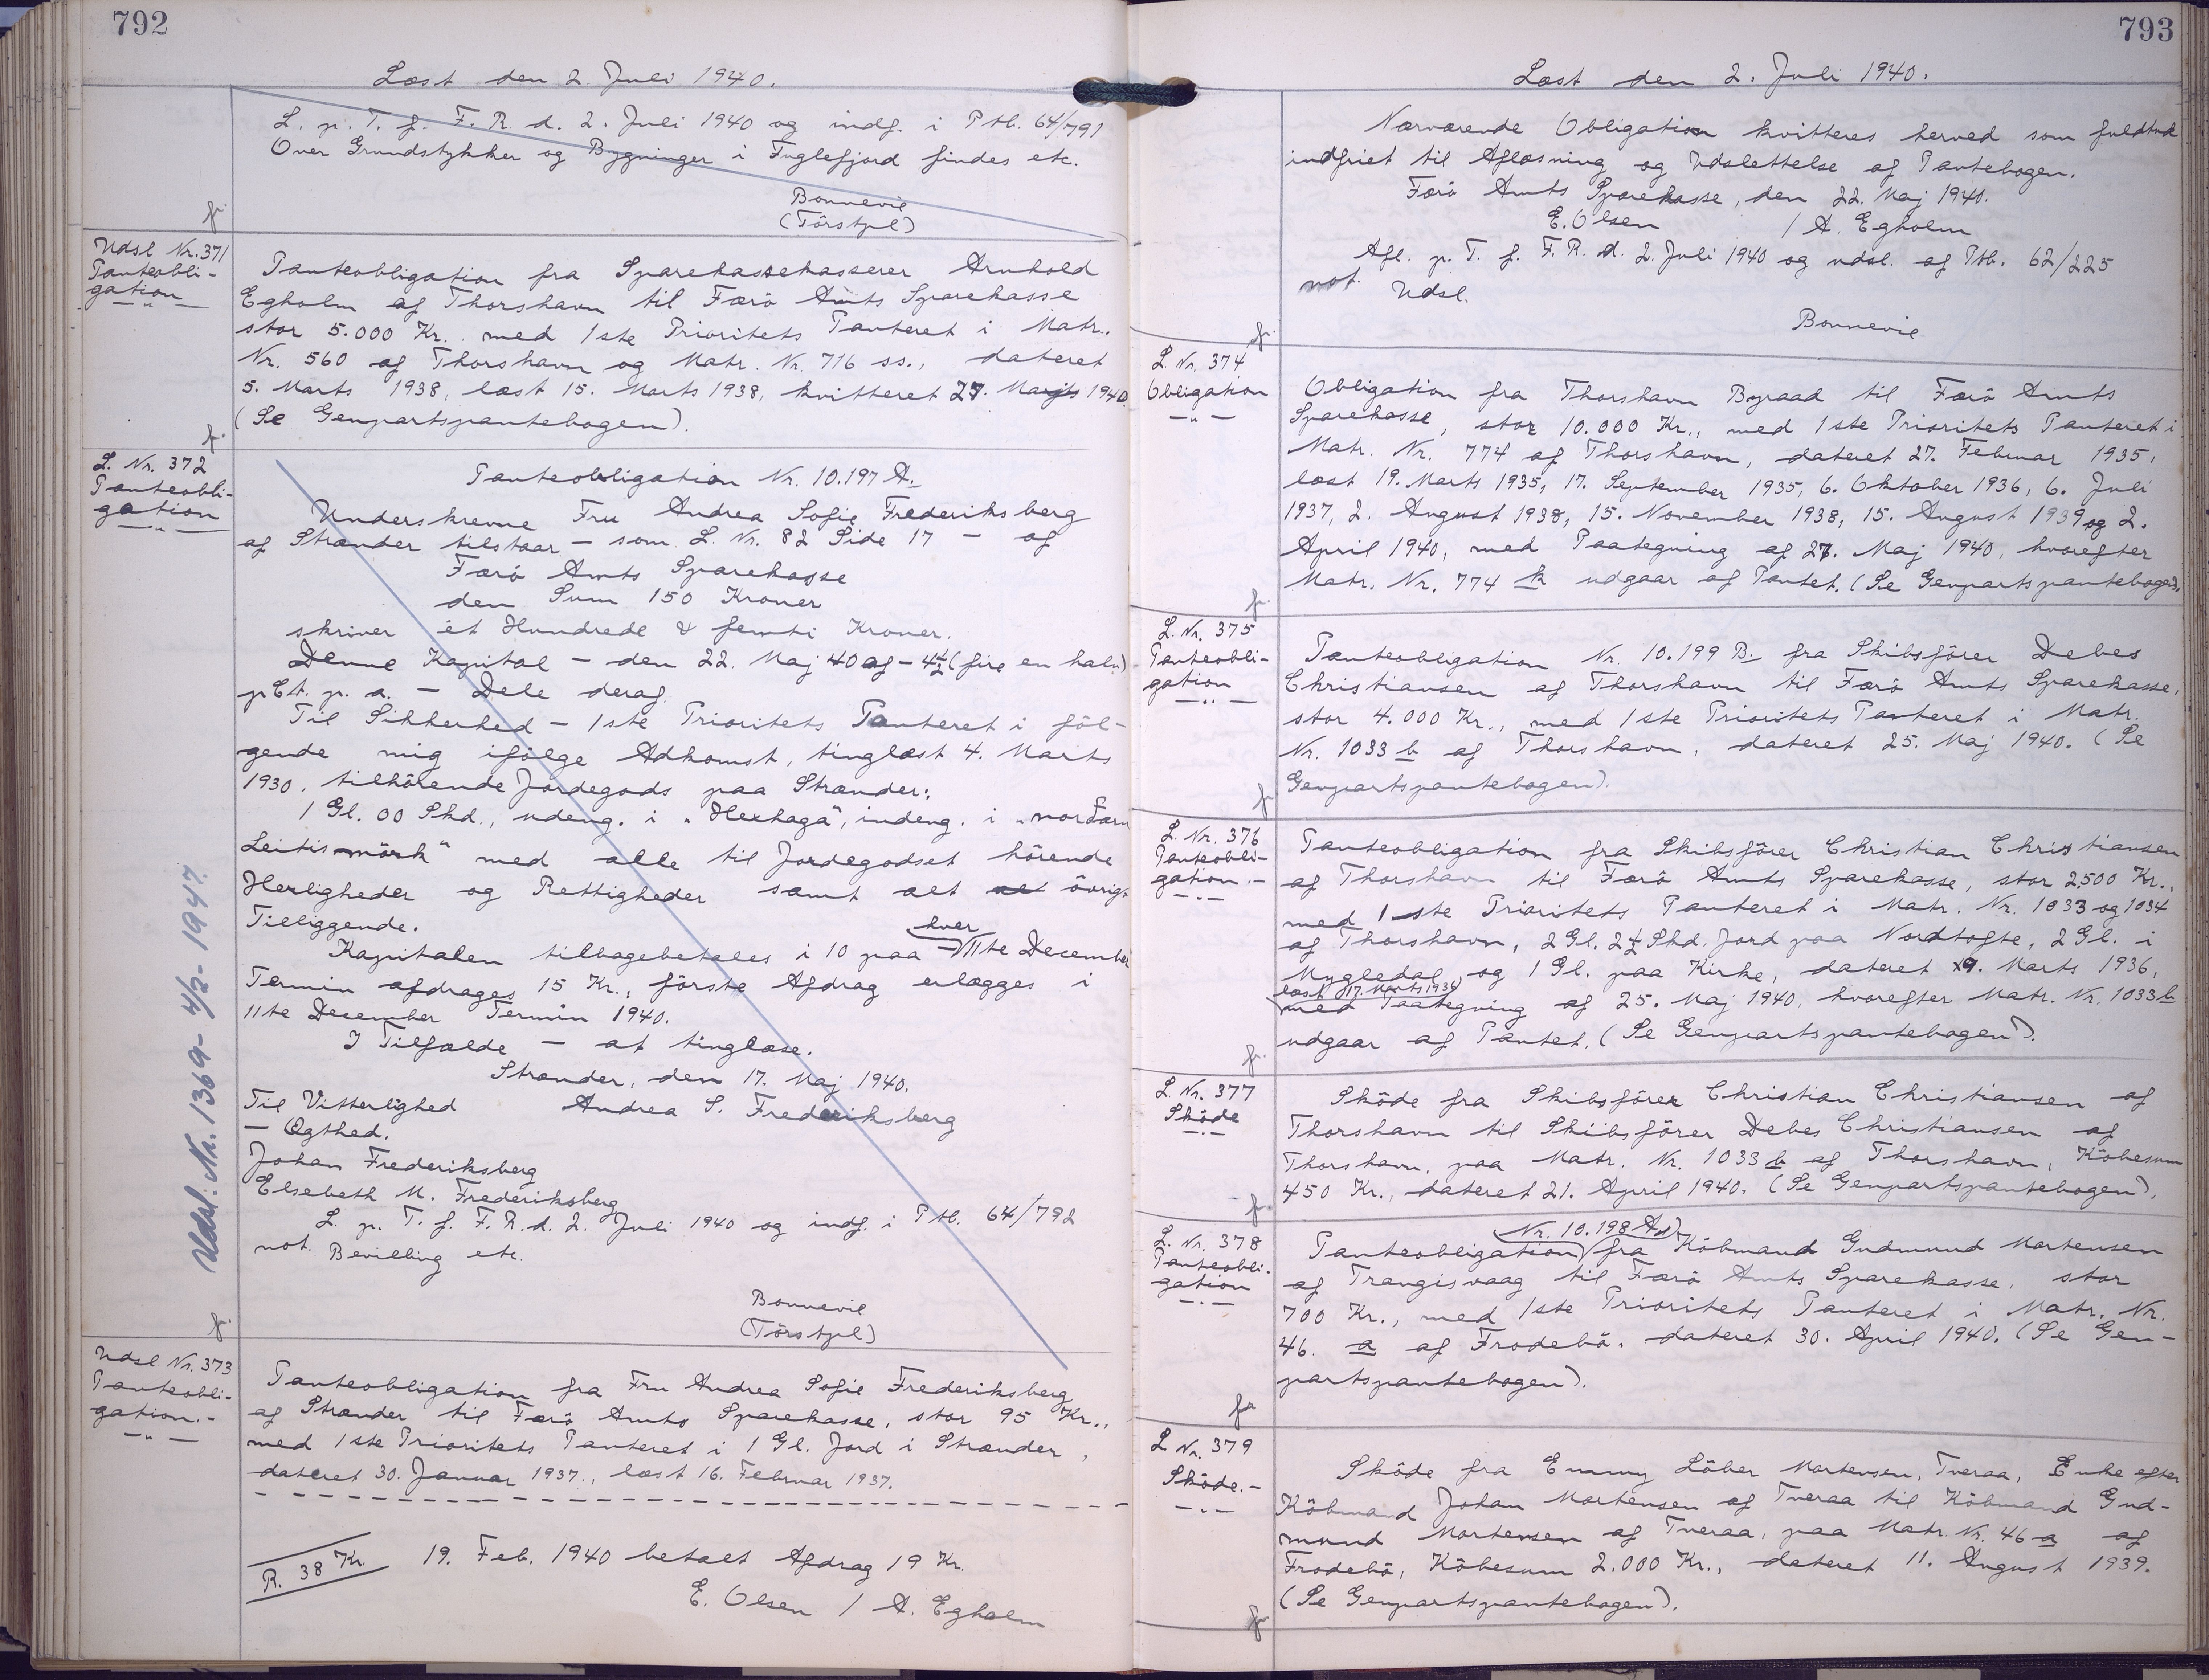 792
Læst den 2. Juli 1940.
L. p. T. f. F. R. d. 2. Juli 1940 og indf. i Ptb. 64/791
Over Grundstykker og Bygninger i Fuglefjord findes etc.
Bonnevie
(Törstpl)
Udsl Nr. 371
Panteobli-
gation
Panteobligation fra Sparekassekasserer Arnhold
Egholm af Thorshavn til Færö Amts Sparekasse
stor 5.000 Kr. med 1ste Prioritets Panteret i Matr.
Nr. 560 af Thorshavn og Matr. Nr. 716 ss., dateret
5. Marts 1938, læst 15. Marts 1938, kvitteret 27. Maj 1940.
(Se Genpartspantebogen).
L. Nr. 372
Panteobli-
gation
Panteobligation Nr. 10.197 A.
Underskrevne Fru Andrea Sofie Frederiksberg
af Strænder tilstaar - som L. Nr. 82 Side 17 - af
Færö Amts Sparekasse
den Sum 150 Kroner
skriver et Hundrede & femti Kroner.
Denne Kapital - den 22. Maj 40 af - 4½ (fire en halv)
pCt. p. a. - Dele deraf
Til Sikkerhed - 1ste Prioritets Panteret i föl-
gende mig ifölge Adkomst, tinglæst 4. Marts
1930, tilhörende Jordegods paa Strænder:
1 Gl. 00 Skd., udeng. i "Hexhaga", indeng. i "norðaru
Leitismörk" med alle til Jordegodset hörende
Herligheder og Rettigheder samt alt al övrigt
Tilliggende.
Kapitalen tilbagebetales i 10 paa hver 11te December
Termin afdrages 15 Kr., förste Afdrag erlægges i
11te December Termin 1940.
I Tilfælde - at tinglæse.
Strænder, den 17. Maj 1940.
Til Vitterlighed Andrea S. Frederiksberg
- Ægthed.
Johan Frederiksberg
Elsebeth M. Frederiksberg
L. p. T. f. F. R. d. 2. Juli 1940 og indf. i Ptb. 64/792
not. Bevilling etc.
Bonnevie
(Törstpl)
Udsl. Nr. 1369 - 4/3 - 1947.
Udsl Nr. 373
Panteobli-
gation.-
Panteobligation fra Fru Andrea Sofie Frederiksberg
af Strænder til Færö Amts Sparekasse, stor 95 Kr.,
med 1ste Prioritets Panteret i 1 Gl. Jord i Strænder,
dateret 30. Januar 1937., læst 16. Februar 1937.
R. 38 Kr. 19. Feb. 1940 betalt Afdrag 19 Kr.
E. Olsen / A. Egholm
793
Læst den 2. Juli 1940.
Nærværende Obligation kvitteres herved som fuldtud
indfriet til Aflæsning og Udslettelse af Pantebogen.
Færö Amts Sparekasse, den 22. Maj 1940.
E. Olsen / A. Egholm
Afl. p. T. f. F. R. d. 2. Juli 1940 og udsl. af Ptb. 62/225
not. Udsl.
Bonnevie
L. Nr. 374
Obligation
Obligation fra Thorshavn Byraad til Færö Amts
Sparekasse, stor 10.000 Kr., med 1ste Prioritets Panteret i
Matr. Nr. 774 af Thorshavn, dateret 27. Februar 1935,
læst 19. Marts 1935, 17. September 1935, 6. Oktober 1936, 6. Juli
1937, 2. August 1938, 15. November 1938, 15. August 1939 og 2.
April 1940, med Paategning af 27. Maj 1940, hvorefter
Matr. Nr. 774 k udgaar af Pantet. (Se Genpartspantebogen).
L. Nr. 375
Panteobli-
gation
Panteobligation Nr. 10.199 B. fra Skibsförer Debes
Christiansen af Thorshavn til Færö Amts Sparekasse,
stor 4.000 Kr., med 1ste Prioritets Panteret i Matr.
Nr. 1033 b af Thorshavn, dateret 25. Maj 1940. (Se
Genpartspantebogen).
L. Nr. 376
Panteobli-
gation.-
Panteobligation fra Skibsförer Christian Christiansen
af Thorshavn til Færö Amts Sparekasse, stor 2.500 Kr.,
med 1ste Prioritets Panteret i Matr. Nr. 1033 og 1034
af Thorshavn, 2 Gl. 2½ Skd. Jord paa Nordtofte, 2 Gl. i
Mygledal og 1 Gl. paa Kirke, dateret 9. Marts 1936,
læst 17. Marts 1936
med Paategning af 25. Maj 1940, hvorefter Matr. Nr. 1033 b
udgaar af Pantet. (Se Genpartspantebogen).
L. Nr. 377
Sköde
Sköde fra Skibsförer Christian Christiansen af
Thorshavn til Skibsförer Debes Christiansen af
Thorshavn, paa Matr. Nr. 1033 b af Thorshavn, Köbesum
450 Kr., dateret 21. April 1940. (Se Genpartspantebogen).
L. Nr. 378
Panteobli-
gation
Nr. 10.198 A
Panteobligation fra Köbmand Gudmund Mortensen
af Trangisvaag til Færö Amts Sparekasse, stor
700 Kr., med 1ste Prioritets Panteret i Matr. Nr.
46 a af Frodebö, dateret 30. April 1940. (Se Gen-
partspantebogen).
L Nr. 379
Sköde.-
Sköde fra Emmy Löber Mortensen, Tveraa, Enke efter
Köbmand Johan Mortensen af Tveraa til Köbmand Gud-
mund Mortensen af Tveraa, paa Matr. Nr. 46 a af
Frodebö, Köbesum 2.000 Kr., dateret 11. August 1939.
(Se Genpartspantebogen).